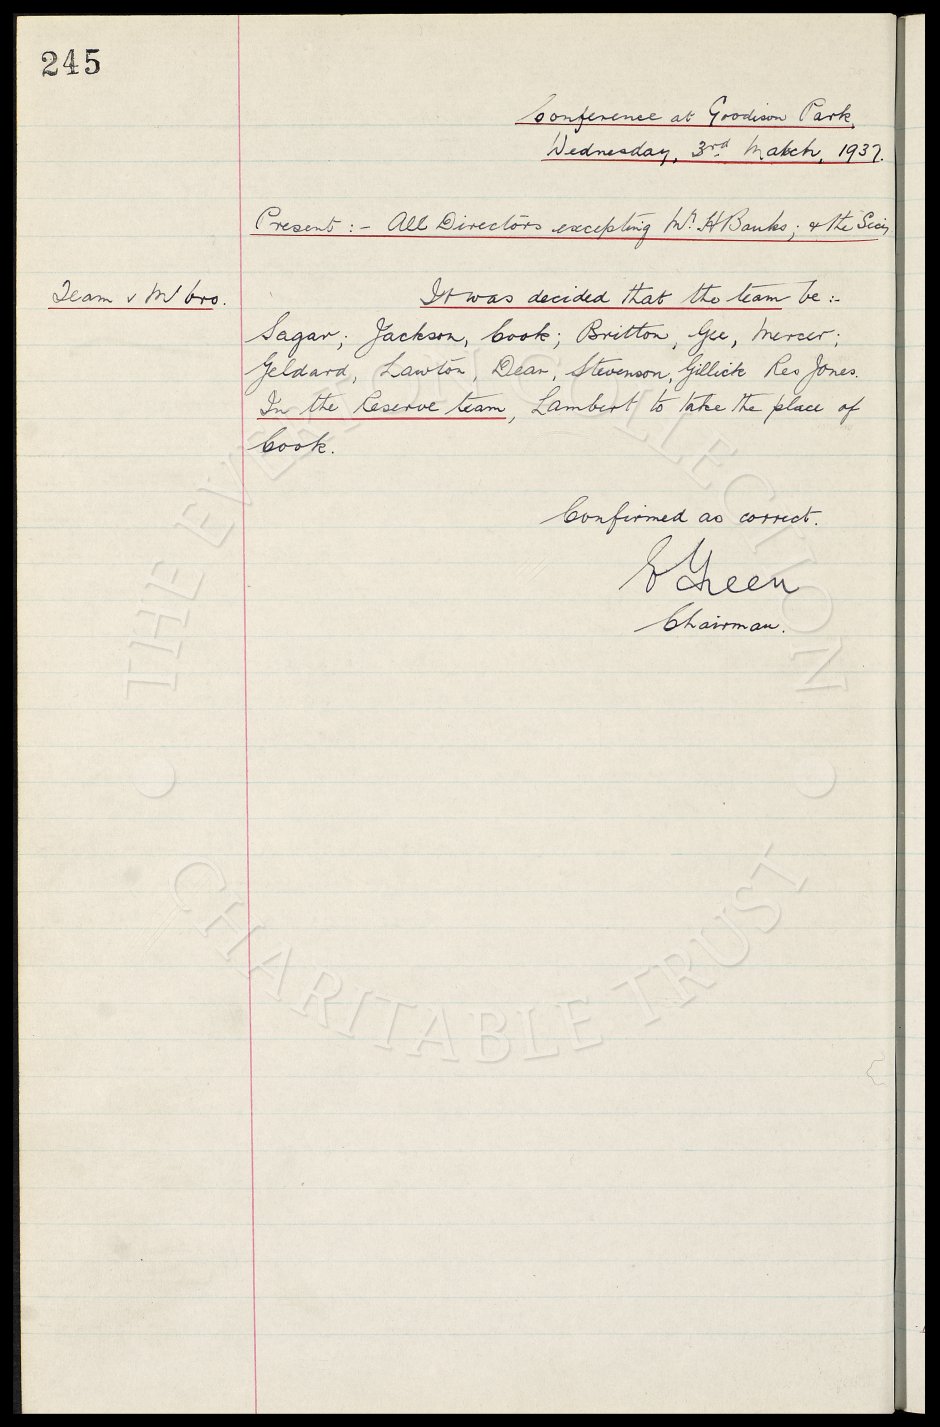 245
Conference at Goodison Park,
Wednesday, 3rd March, 1937.
Present :- All Directors excepting Mr. H Banks; & the Secy
Team v M'bro.
It was decided that the team be :-
Sagar; Jackson, Cook; Britton, Gee, Mercer;
Geldard, Lawton, Dean, Stevenson, Gillick Res Jones.
In the Reserve team, Lambert to take the place of
Cook.
Confirmed as correct.
E Green
Chairman.
THE EVERTON COLLECTION
CHARITABLE TRUST